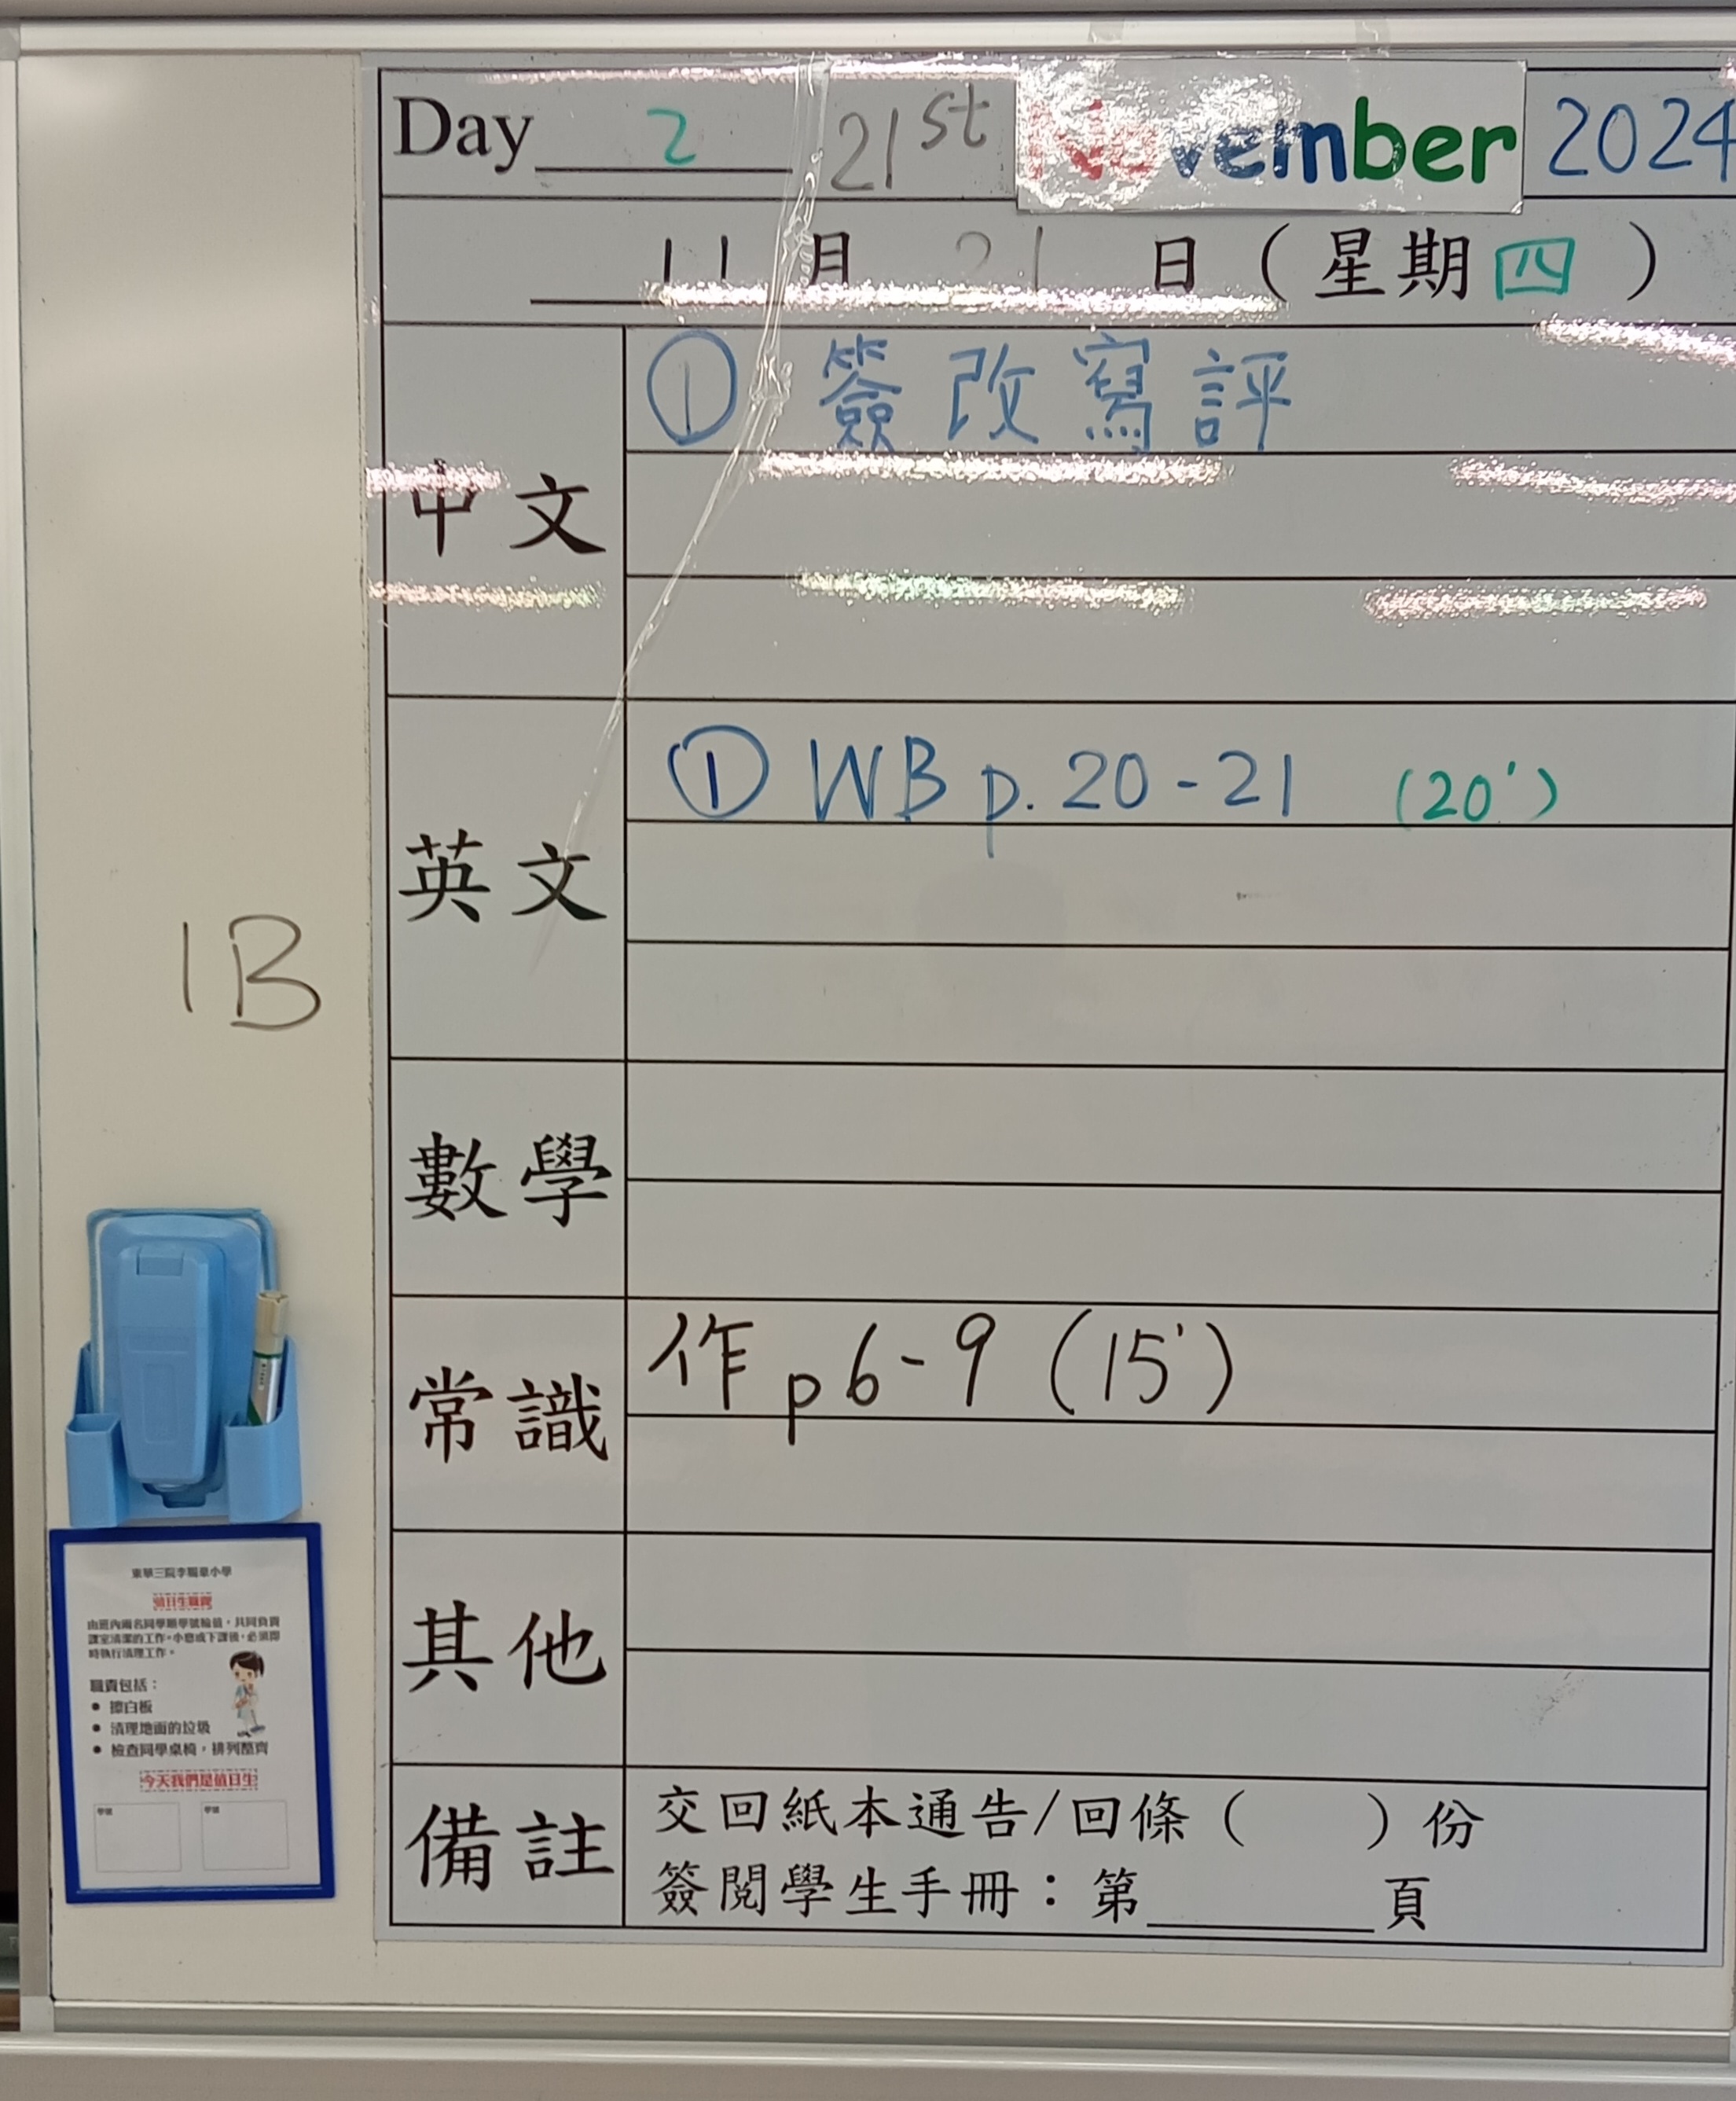 Day 2 21st November 2024
11月21日(星期四)
中文
① 簽改寫評
英文
① WB p. 20-21 (20')
1B
數學
常識
作 p6-9 (15')
其他
備註
交回紙本通告/回條( )份
簽閱學生手冊:第______頁
值日生職責
由班內兩名同學順學號輪值,共同負責
課室清潔的工作。小息或下課後,必須即
時執行清理工作。
職責包括:
● 擦白板
● 清理地面的垃圾
● 檢查同學桌椅,排列整齊
今天我們是值日生
學號
學號